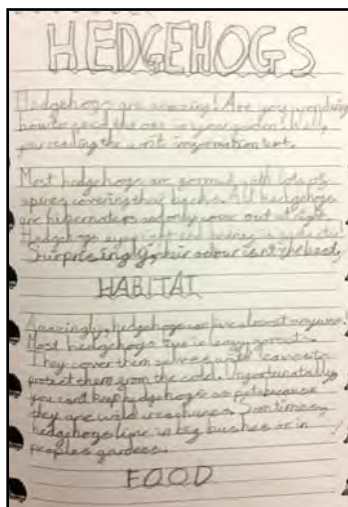 HEDGEHOGS
Hedgehogs are amazing! Are you wondering
how to feed the one in your garden? Well,
you reading the information text.
Most hedgehogs are formed with lots of
spines covering their backs. All hedgehogs
are hibernators and only come out at night.
Hedgehog eyesight and hearing is
Surprisingly, their odour isnt the best.
HABITAT
Amazingly, hedgehogs can live almost anywhere!
Most hedgehogs live in leavy
They cover them selves with leaves to
protect them from the cold. Unfortunatally,
you can't keep hedgehogs as pets because
they are wild creachures. Somtimes,
hedgehogs live in big bushes or in
peoples gardens.
FOOD